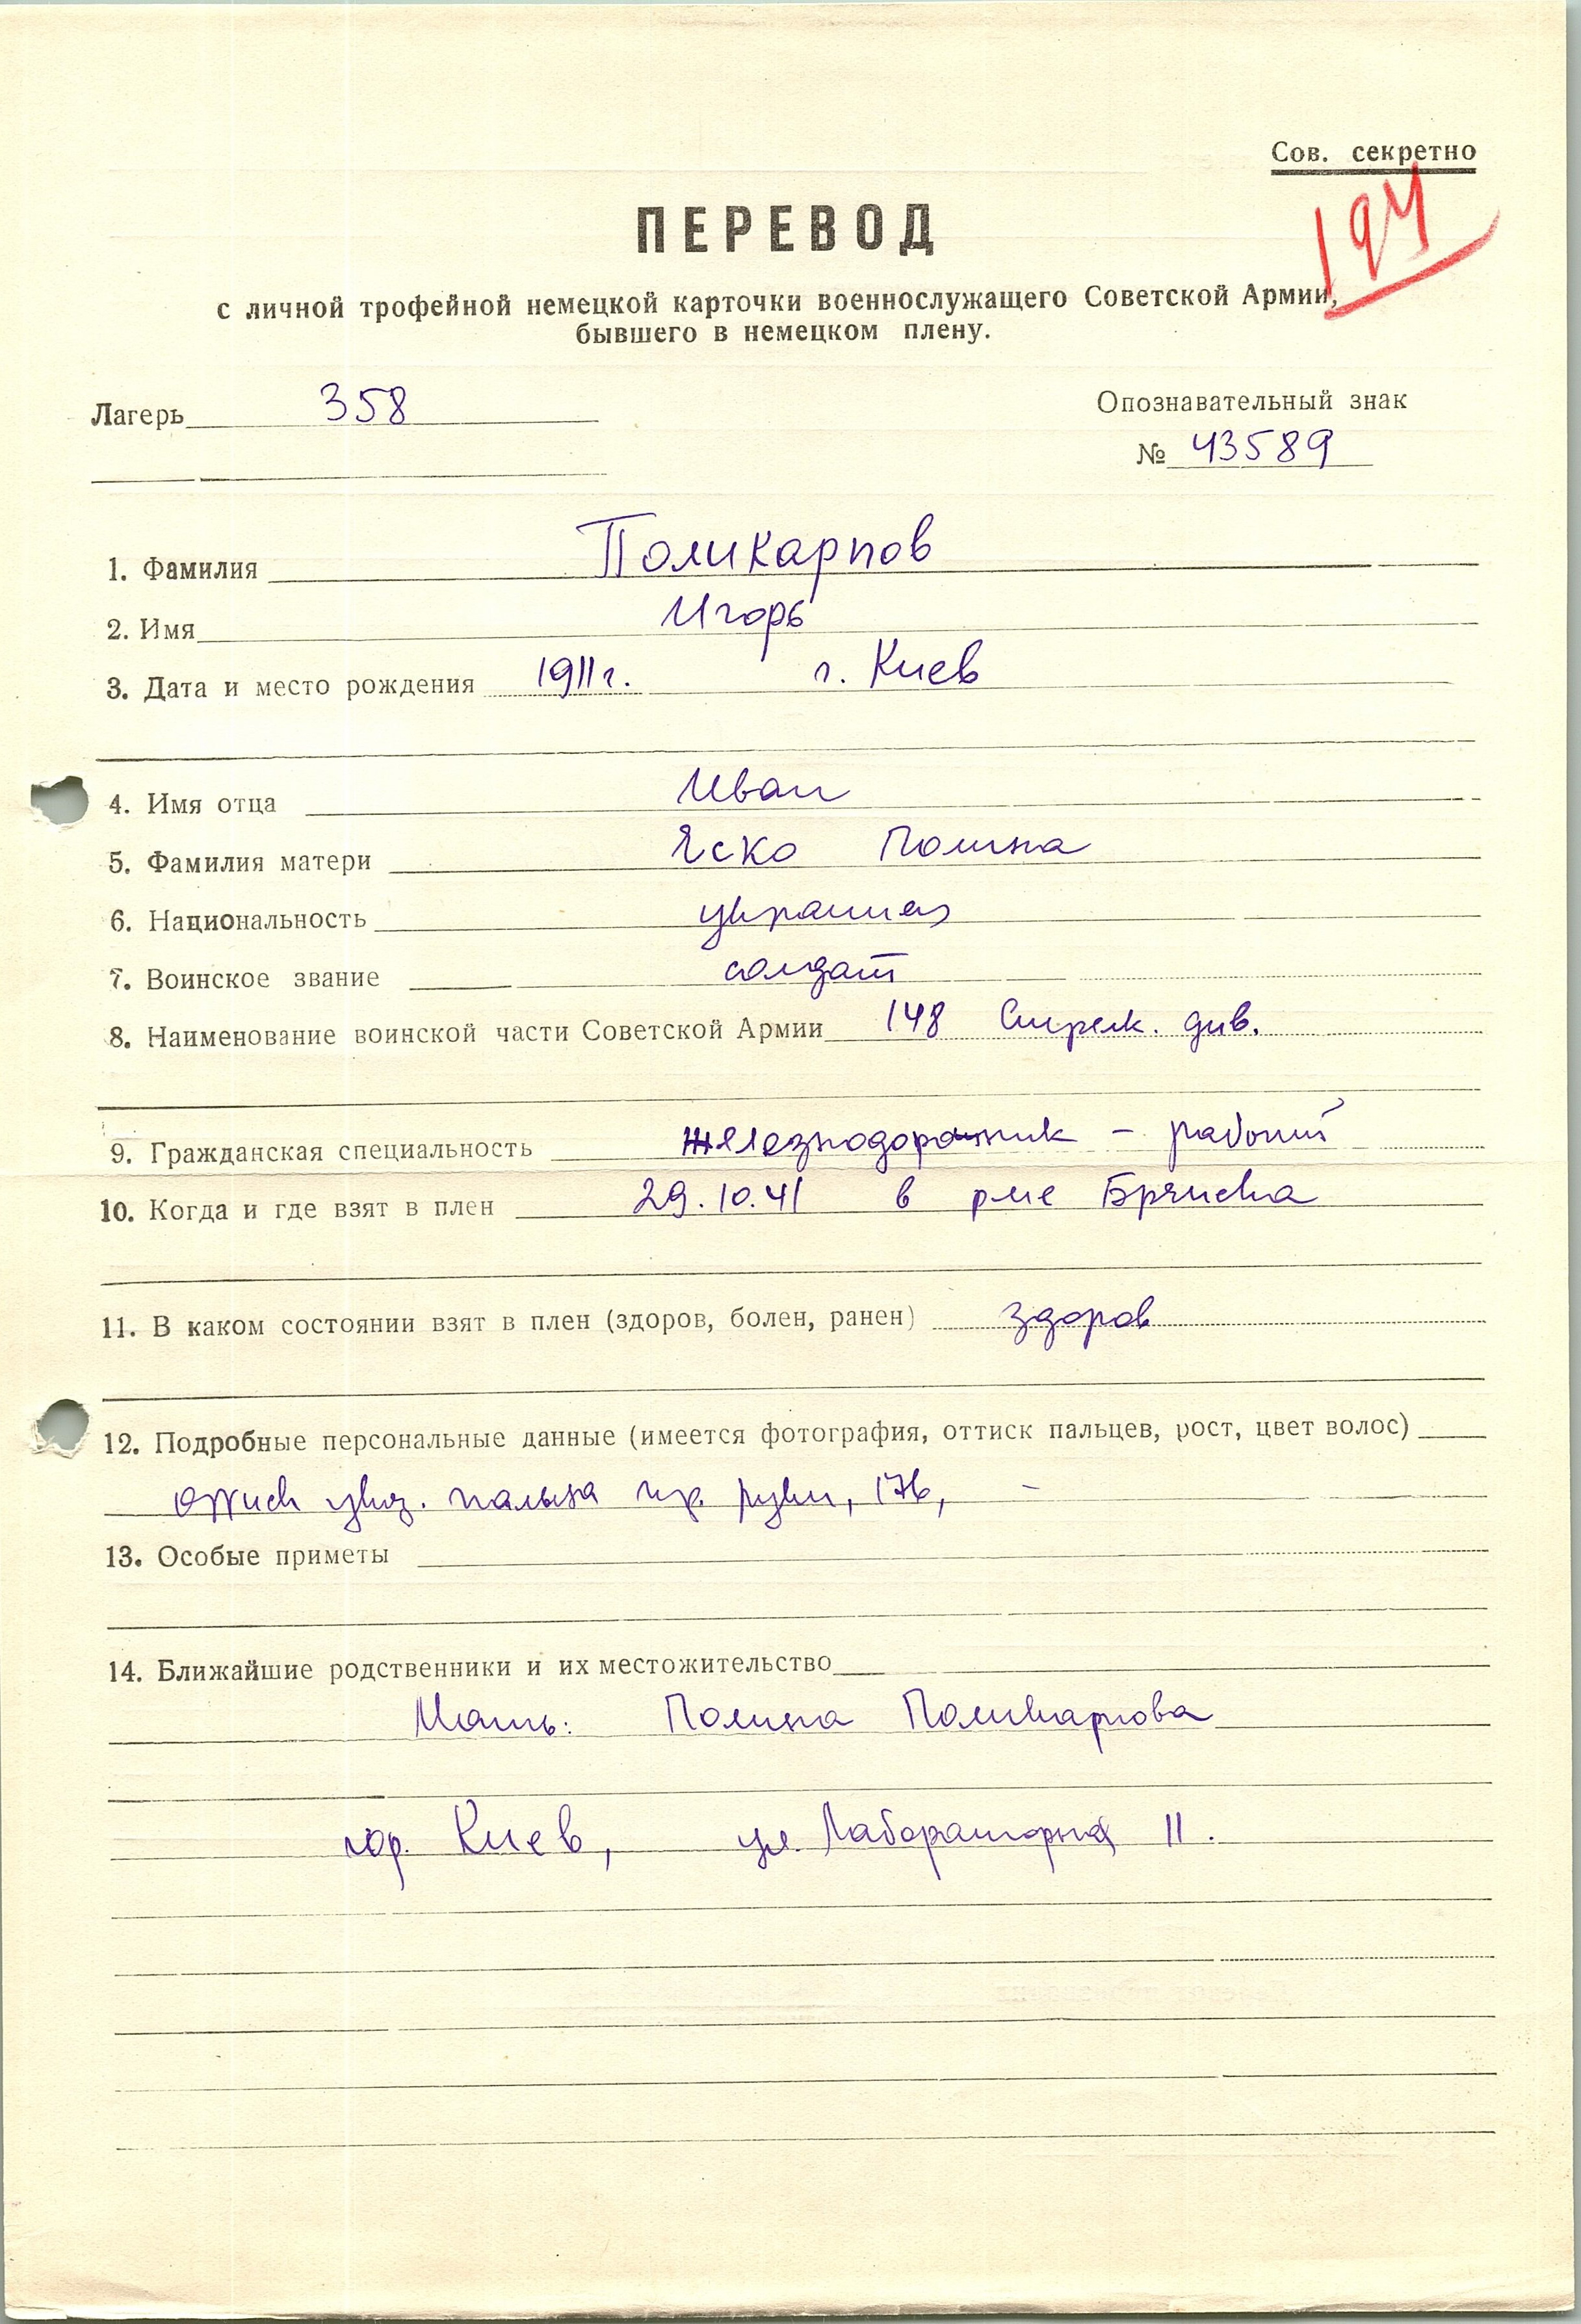 Сов. секретно
194
ПЕРЕВОД
с личной трофейной немецкой карточки военнослужащего Советской Армии,
бывшего в немецком плену.
Лагерь 358
Опознавательный знак
№ 43589
1. Фамилия Поликарпов
2. Имя Игорь
3. Дата и место рождения 1911 г. г. Киев
4. Имя отца Иван
5. Фамилия матери Еско Полина
6. Национальность украинец
7. Воинское звание солдат
8. Наименование воинской части Советской Армии 148 Стрелк. див.
9. Гражданская специальность железнодорожник - рабочий
10. Когда и где взят в плен 29.10.41 в р-не Брянска
11. В каком состоянии взят в плен (здоров, болен, ранен) здоров
12. Подробные персональные данные (имеется фотография, оттиск пальцев, рост, цвет волос)
оттиск указ. пальца пр. руки, 176, -
13. Особые приметы
14. Ближайшие родственники и их местожительство
Мать: Полина Поликарпова
гор. Киев, ул. Лабораторная 11.